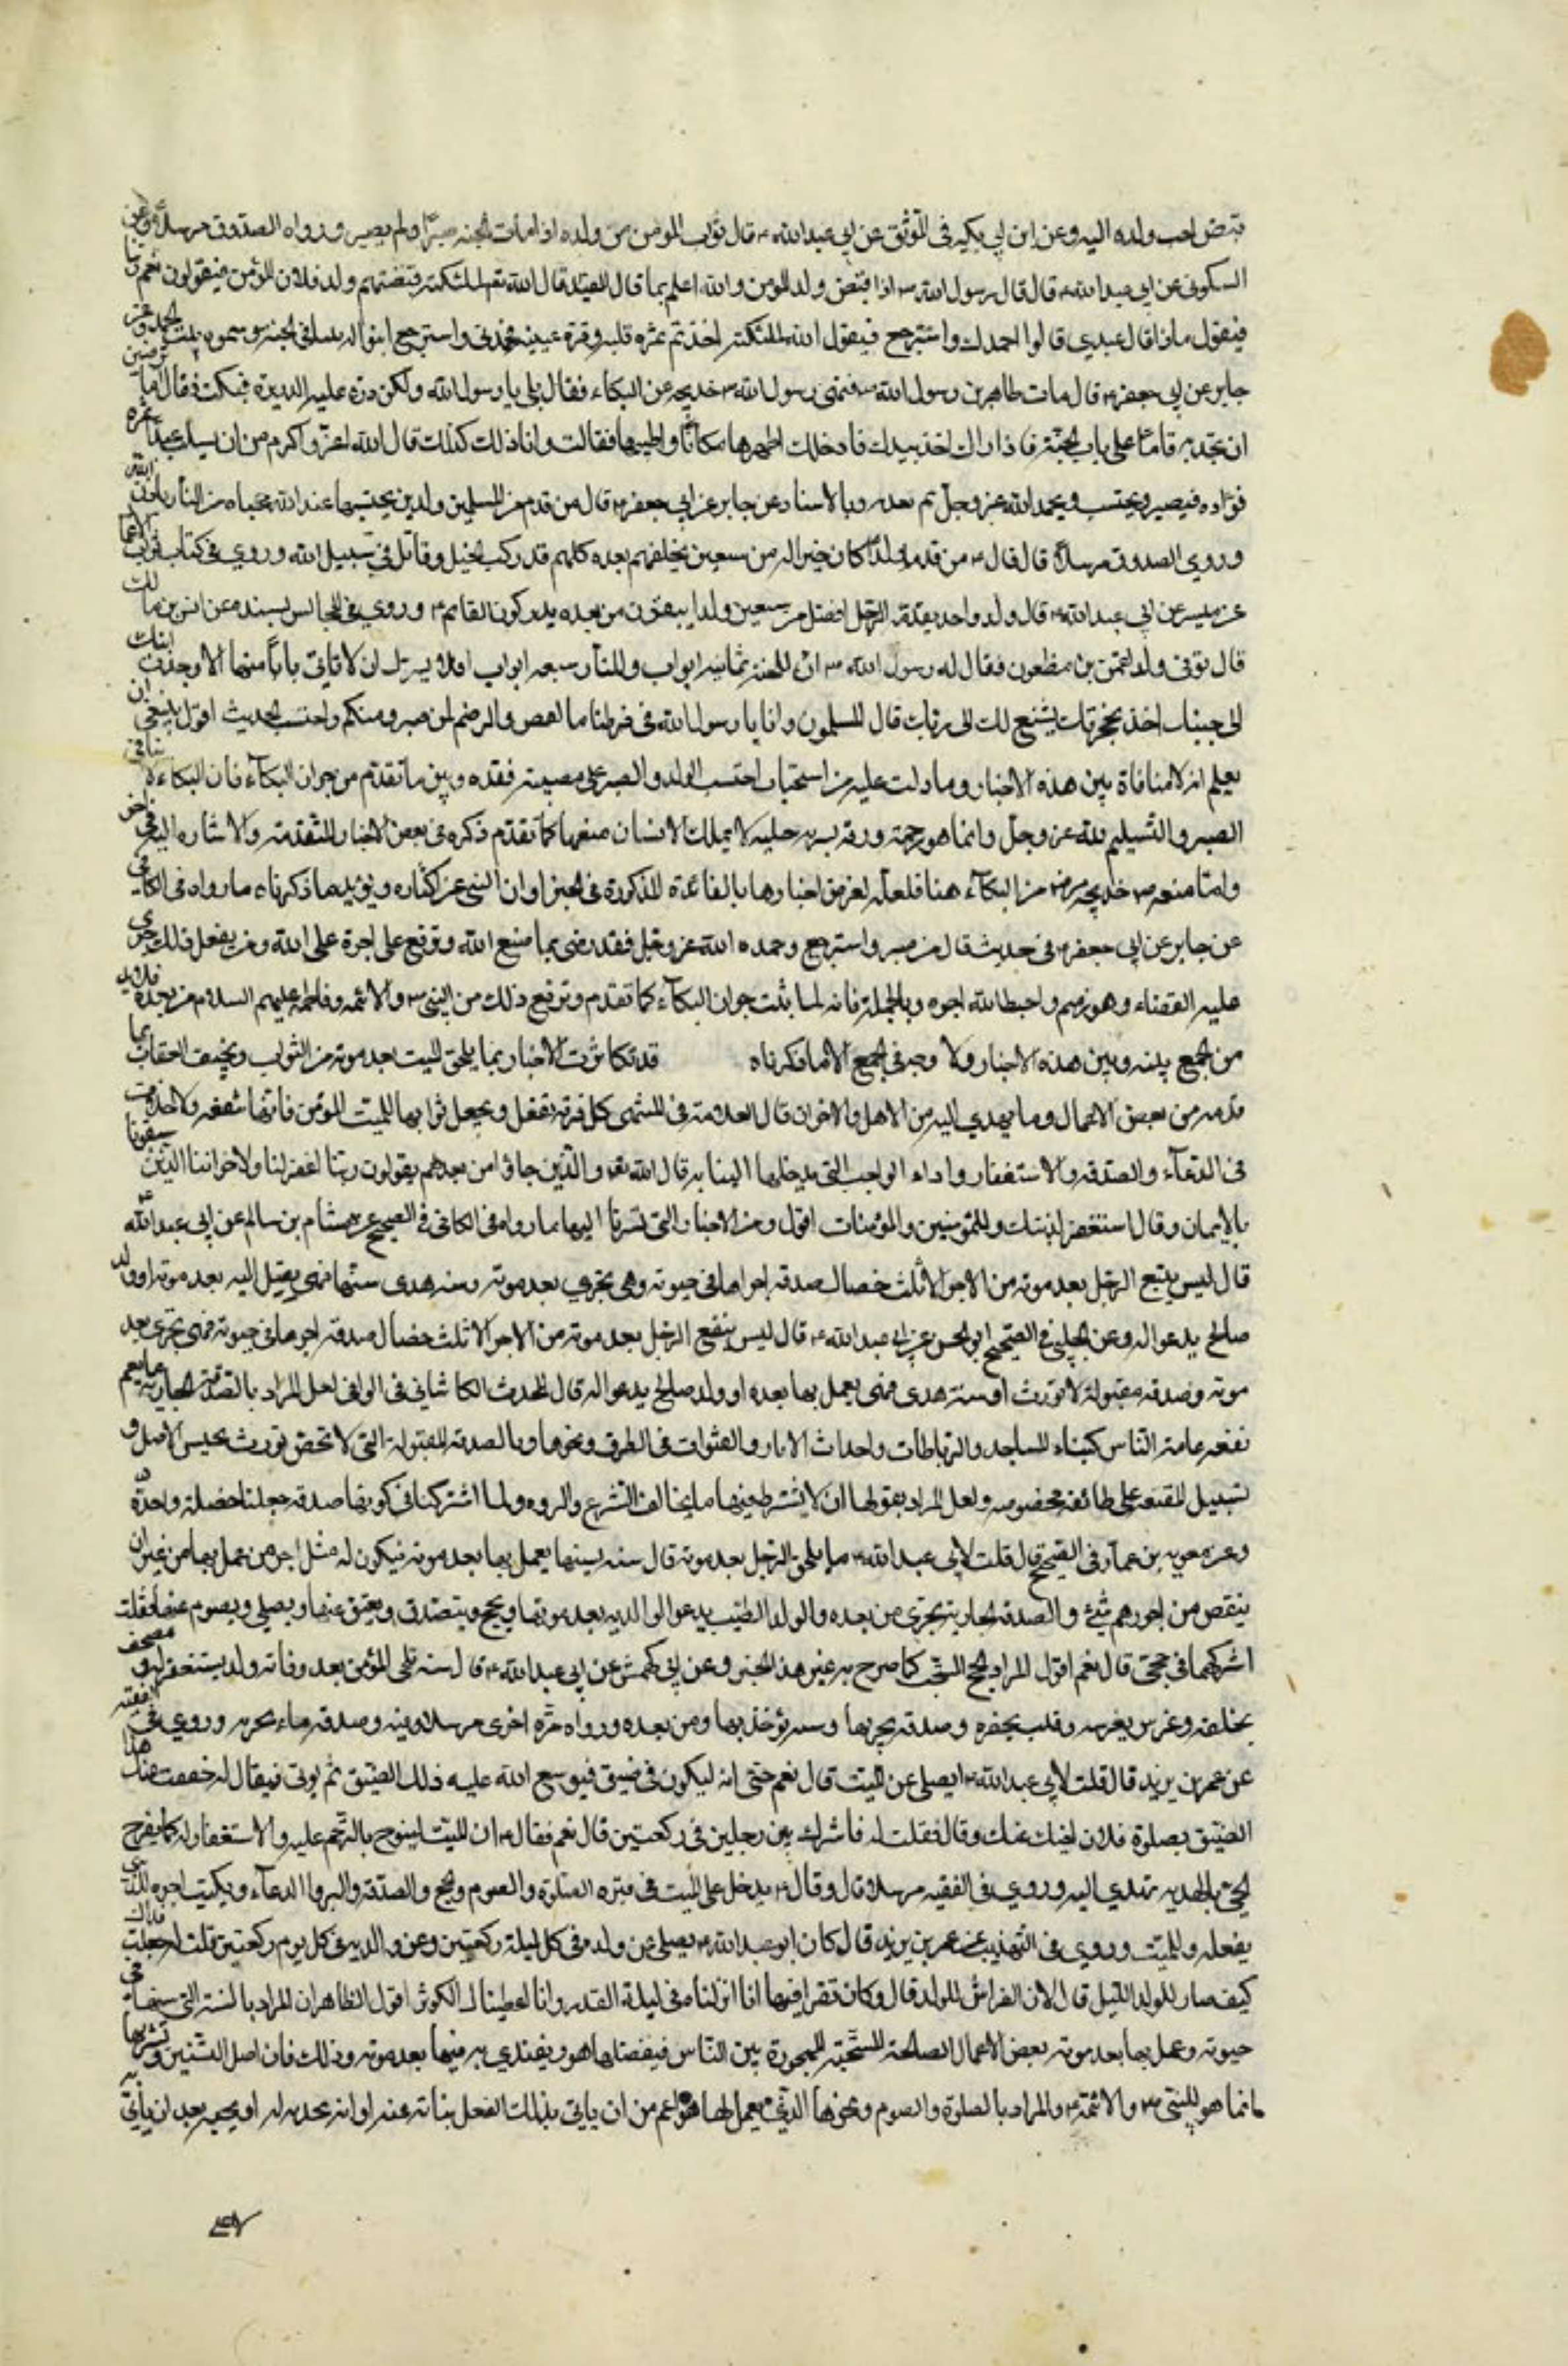 قبض احب ولده اليه وعن ابن ابي بكير فى الموثق عن ابي عبدالله ع قال ثواب المومن من ولده اذا مات الجنه صبرا ولم يصبر ورواه الصدوق مرسلا وعن
السكونى عن ابي عبدالله ع قال قال رسول الله ص اذا قبض ولد المومن والله اعلم بما قال العبد قال الله تعـ لملئكته قبضتم ولد فلان المؤمن فيقولون نعم ربنا
فيقول ماذا قال عبدي قالوا حمدك واسترجع فيقول الله لملئكته اخذتم ثمرة قلبه وقرة عينه فحمدنى واسترجع ابنوا له بيتا فى الجنه وسموه بيت الحمد وعن
جابر عن ابي جعفر ع قال مات طاهر بن رسول الله ص فنهى رسول الله ص خديجه عن البكاء فقال بلى يا رسول الله ولكن درة عليه الدريرة فبكيت فقال اما ترضين
ان تجديه قائما على باب الجنة فاذا راك اخذ بيدك فادخلك اطهرها مكانا واطيبها فقالت وان ذلك كذلك قال الله اعز واكرم من ان يسلب عبدا ثمرة
فؤاده فيصبر ويحتسب ويحمد الله عز وجل ثم يعذبه وبالاسناد عن جابر عن ابي جعفر ع قال من قدم من المسلمين ولدين يحتسبهما عند الله حجباه من النار باذن الله
وروي الصدوق مرسلا قال قال ع من قدم ولدا كان خيرا له من سبعين يخلفهم بعده كلهم قد ركب الخيل وقاتل فى سبيل الله وروي فى كتاب ثواب الاعمال
عن ميسر عن ابي عبدالله ع قال ولد واحد يقدمه الرجل افضل من سبعين ولدا يبقون من بعده يدركون القايم ع وروي فى المجالس بسنده عن انس بن مالك
قال توفى ولد لعثمن بن مظعون فقال له رسول الله ص ان للجنة ثمانيه ابواب وللنار سبعه ابواب افلا يسرك ان لا تاتى بابا منها الا وجدت ابنك
الى جنبك اخذ بحجزتك يشفع لك الى ربك قال المسلمون ولنا يا رسول الله فى فرطنا ما لعثمن قال نعم لمن صبر منكم واحتسب الحديث اقول ينبغي ان
يعلم انه لا منافاة بين هذه الاخبار وما دلت عليه من استحباب احتساب الولد والصبر على مصيبته فقده وبين ما تقدم من جواز البكاء فان البكاء لا ينافى
الصبر والتسليم لله عز وجل وانما هو رحمة ورقة بشريه جبليه لا يملك الانسان منعها كما تقدم ذكره فى بعض الاخبار المتقدمة والاشاره اليه فى اخر
واما منعه ص خديجه رض من البكاء هنا فلعله لغرض اخبارها بالفائدة المذكورة فى الخبر او ان النهى عن اكثاره ويؤيد ما ذكرناه ما رواه فى الكافى
عن جابر عن ابي جعفر ع فى حديث قال من صبر واسترجع وحمد الله عز وجل فقد رضى بما صنع الله ووقع على اجره على الله ومن لم يفعل ذلك جرى
عليه القضاء وهو ذميم واحبط الله اجره وبالجملة فانه لما ثبت جواز البكاء كما تقدم ووقع ذلك من النبى ص والائمه وفاطمه عليهم السلام من بعده فلا بد
من الجمع بينه وبين هذه الاخبار ولا وجه فى الجمع الا ما ذكرناه قد تكاثرت الاخبار بما يلحق الميت بعد موته من الثواب وتخفيف العقاب بما
قدمه من بعض الاعمال وما يهدي اليه من الاهل والاخوان قال العلامة فى المنتهى كل قربة تفعل ويجعل ثوابها للميت المؤمن فانها تنفعه ولا خلاف
فى الدعاء والصدقه والاستغفار واداء الواجب التى يدخلها النيابه قال الله تعـ والذين جاؤا من بعدهم يقولون ربنا اغفر لنا ولاخواننا الذين سبقونا
بالايمان وقال استغفر لذنبك وللمؤمنين والمؤمنات اقول ومن الاخبار التى اشرنا اليها ما رواه فى الكافى فى الصحيح عن هشام بن سالم عن ابي عبدالله ع
قال ليس يتبع الرجل بعد موته من الاجر الا ثلث خصال صدقه اجراها فى حيوته وهى تجري بعد موته وسنه هدى سنها فهى يعمل بها بعد موته او ولد
صالح يدعو له وعن الحلبى فى الصحيح عن ابي عبدالله ع قال ليس يتبع الرجل بعد موته من الاجر الا ثلث خصال صدقه اجراها فى حيوته فهى تجري بعد
موته وصدقه مقبولة لا تورث او سنة هدى فهى يعمل بها بعده او ولد صالح يدعو له قال المحدث الكاشانى فى الوافى لعل المراد بالصدقة الجارية ما يعم
نفعه عامة الناس كبناء المساجد والرباطات واحداث الابار والقنوات فى الطرق ونحوها وبالصدقه المقبولة التى لا تورث حبس الاصل و
تسبيل المنفعه على طائفه مخصوصه ولعل المراد بقوله ان لا يشترط فيها ما يخالف الشرع والمروه ولما اشتركتا فى كونها صدقه جعلتا خصلة واحدة
وعن معويه بن عمار فى الصحيح قال قلت لابي عبدالله ع ما يلحق الرجل بعد موته قال سنه يسنها يعمل بها بعد موته فيكون له مثل اجر من عمل بها من غير ان
ينقص من اجورهم شئ والصدقه الجارية تجرى من بعده والولد الطيب يدعو لوالديه بعد موتهما ويحج ويتصدق ويعتق عنهما ويصلى ويصوم عنهما فقلت
اشركهما فى حجتى قال نعم اقول المراد بالحج المستحب كما صرح به غير هذا الخبر وعن ابى كهمش عن ابي عبدالله ع قال سته تلحق المؤمن بعد وفاته ولد يستغفر له ومصحف
يخلفه وغرس يغرسه وقليب يحفره وصدقه يجريها وسنه يؤخذ بها من بعده ورواه مرة اخرى مرسلا وفيه وصدقه ماء يجريه وروي فى الفقيه
عن عمر بن يزيد قال قلت لابي عبدالله ع ايصلى عن الميت قال نعم حتى انه ليكون فى ضيق فيوسع الله عليه ذلك الضيق ثم يوتى فيقال له خفف عنك هذا
الضيق بصلوة فلان اخيك عنك وقال فقلت له فاشرك بين رجلين فى ركعتين قال نعم فقال ع ان الميت ليفرح بالترحم عليه والاستغفار له كما يفرح
الحى بالهديه تهدى اليه وروي فى الفقيه مرسلا قال وقال ع يدخل على الميت فى قبره الصلوة والصوم والحج والصدقه والبر والدعاء ويكتب اجره للذى
يفعله وللميت وروي فى التهذيب عن عمر بن يزيد قال كان ابو عبدالله ع يصلى عن ولده فى كل ليلة ركعتين وعن والديه فى كل يوم ركعتين قلت له جعلت فداك
كيف صار للولد الليل قال لان الفراش للولد قال وكان يقرا فيهما انا انزلناه فى ليلة القدر وانا اعطيناك الكوثر اقول الظاهر ان المراد بالسنة التى سنها فى
حيوته وعمل بها بعد موته بعض الاعمال الصالحة المستحبة المهجورة بين الناس فيفعلها هو ويقتدي به فيها بعد موته وذلك فان اصل السنن وتشريعها
انما هو للنبى ص والائمة ع والمراد بالصلوة والصوم ونحوها التى يعمل لها هو اعم من ان ياتى بذلك الفعل نيابة عنه او انه يهديه له بعد ان ياتى به